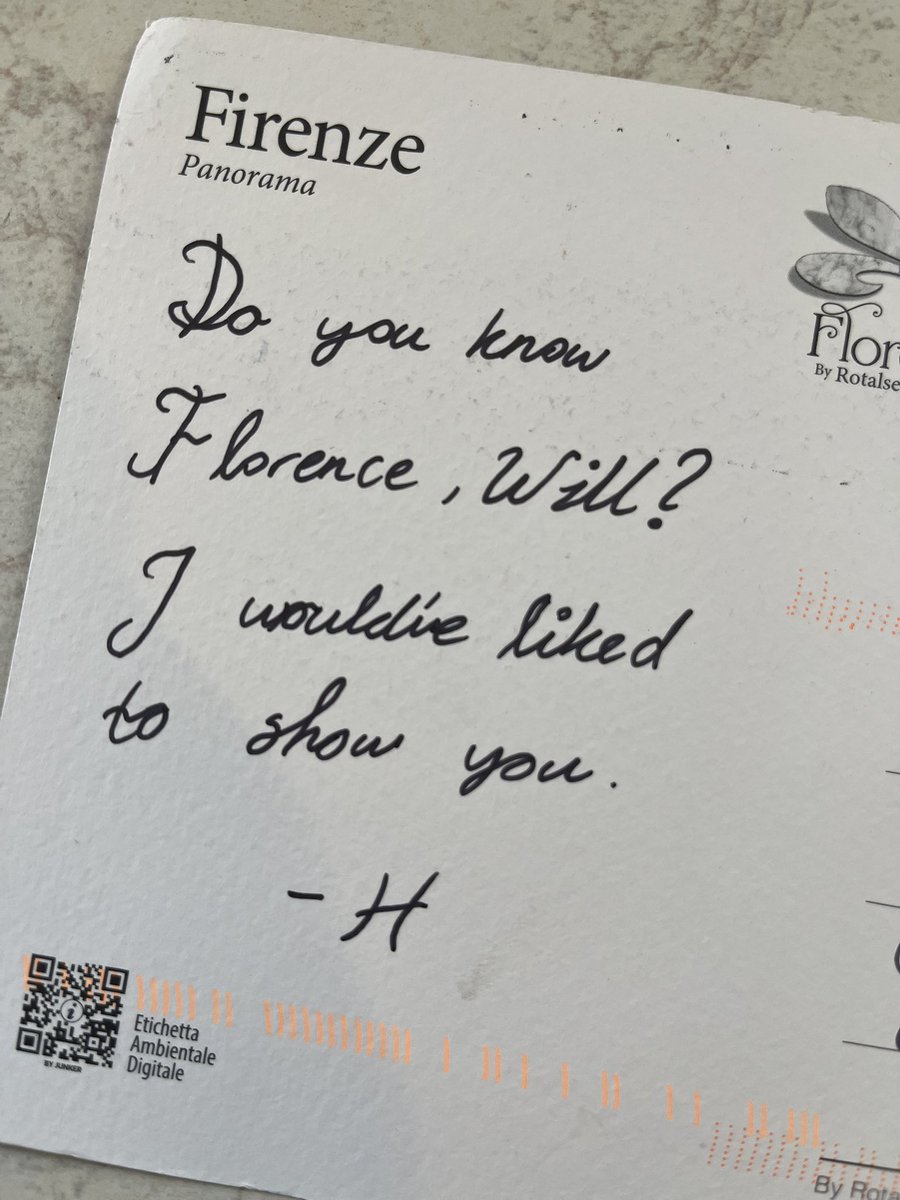 Firenze
Panorama
Do you know
Florence, Will?
I would've liked
to show you.
- H
Flor
By Rotalse
Etichetta
Ambientale
Digitale
BY JUNKER
By Rota